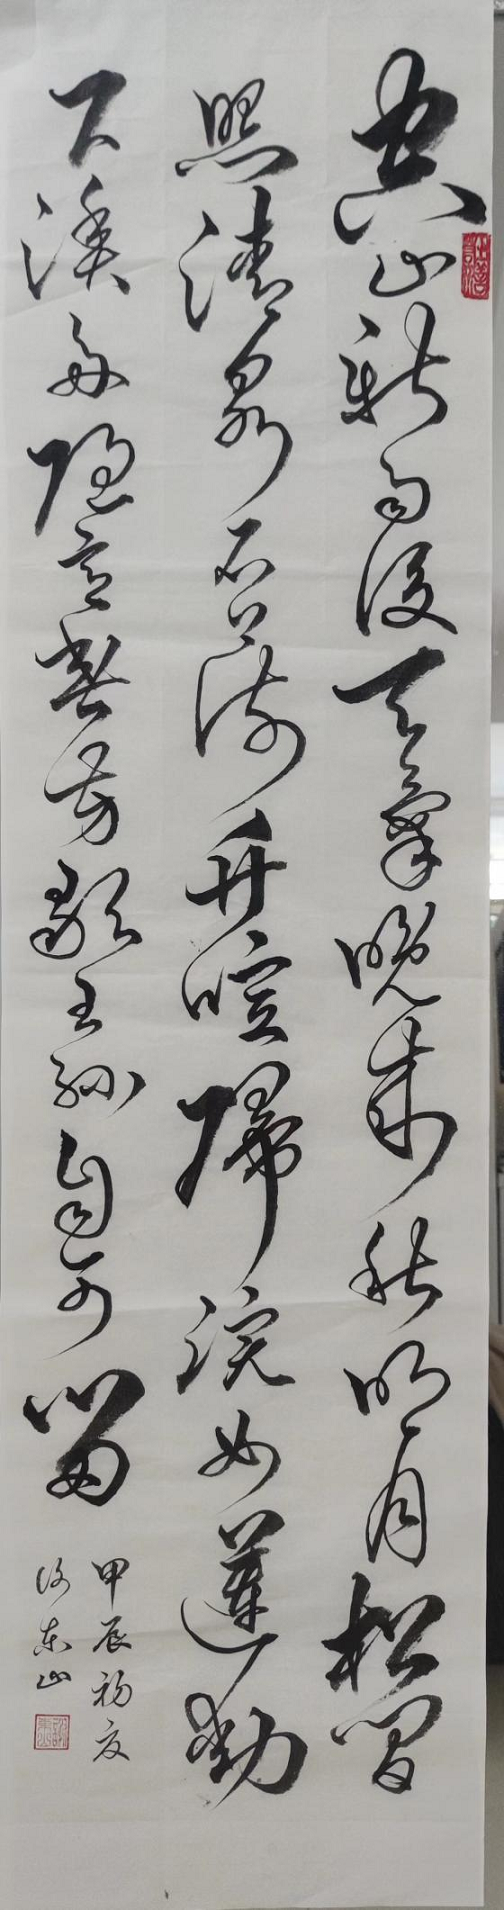 空山新雨後天氣晚來秋明月松間
照清泉石上流竹喧歸浣女蓮動
下漁舟隨意春芳歇王孫自可留
甲辰初夏
許東山